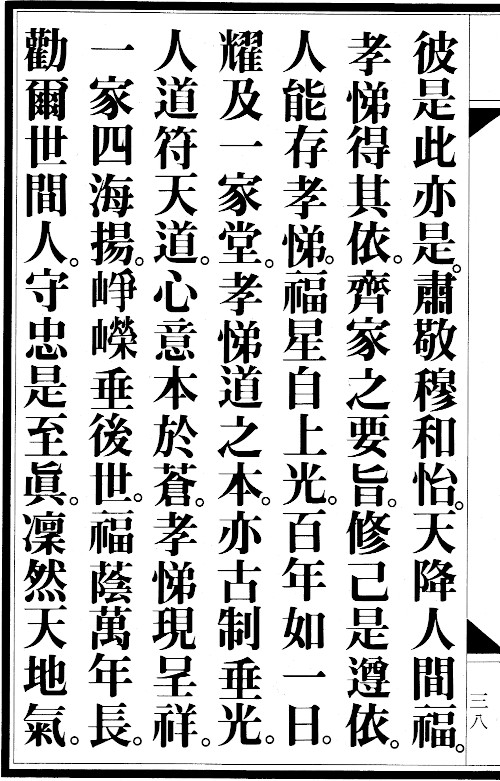 彼是此亦是。肅敬穆和怡。天降人間福。
孝悌得其依。齊家之要旨。修己是遵依。
人能存孝悌。福星自上光。百年如一日。
耀及一家堂。孝悌道之本。亦古制垂光。
人道符天道。心意本於蒼。孝悌現呈祥。
一家四海揚。崢嶸垂後世。福蔭萬年長。
勸爾世間人。守忠是至眞。凜然天地氣。
三八